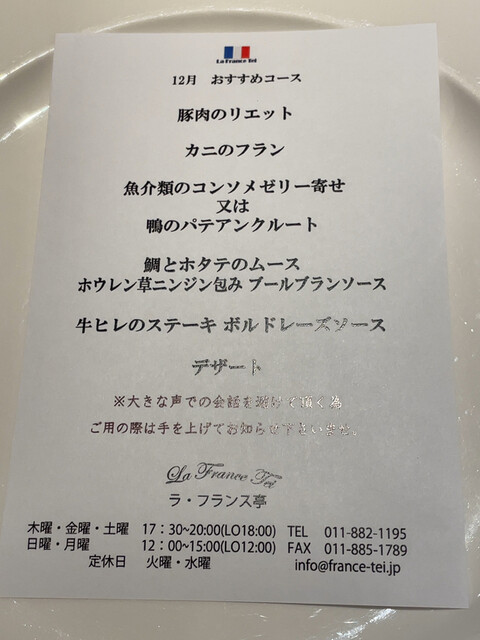 La France Tei
12月 おすすめコース
豚肉のリエット
カニのフラン
魚介類のコンソメゼリー寄せ
又は
鴨のパテアンクルート
鯛とホタテのムース
ホウレン草ニンジン包み ブールブランソース
牛ヒレのステーキ ボルドレーズソース
デザート
※大きな声での会話を避けて頂く為
ご用の際は手を上げてお知らせ下さいませ。
La France Tei
ラ・フランス亭
木曜・金曜・土曜 17：30~20:00(LO18:00) TEL 011-882-1195
日曜・月曜 12：00~15:00(LO12:00) FAX 011-885-1789
定休日 火曜・水曜 info@france-tei.jp